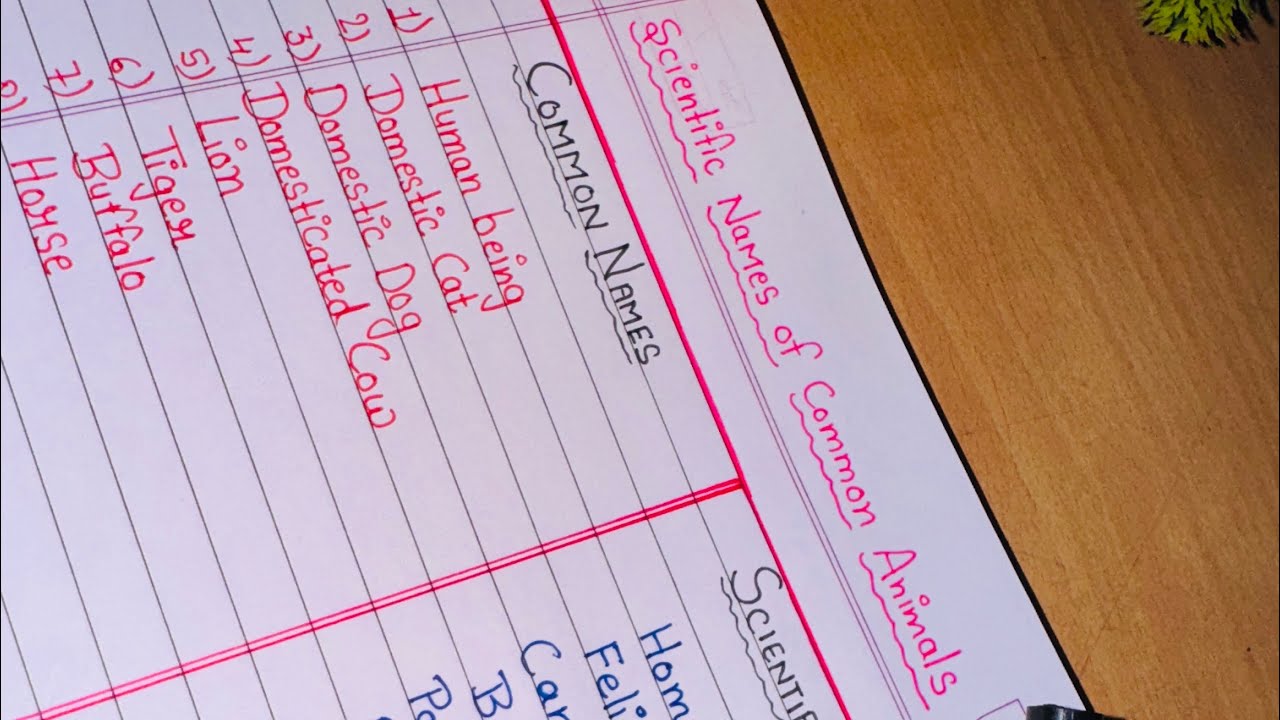 Scientific Names of Common Animals
COMMON NAMES
SCIENTIF
1) Human being
Hom
2) Domestic Cat
Feli
3) Domestic Dog
Can
4) Domesticated Cow
B
5) Lion
Pa
6) Tiger
7) Buffalo
8) Horse